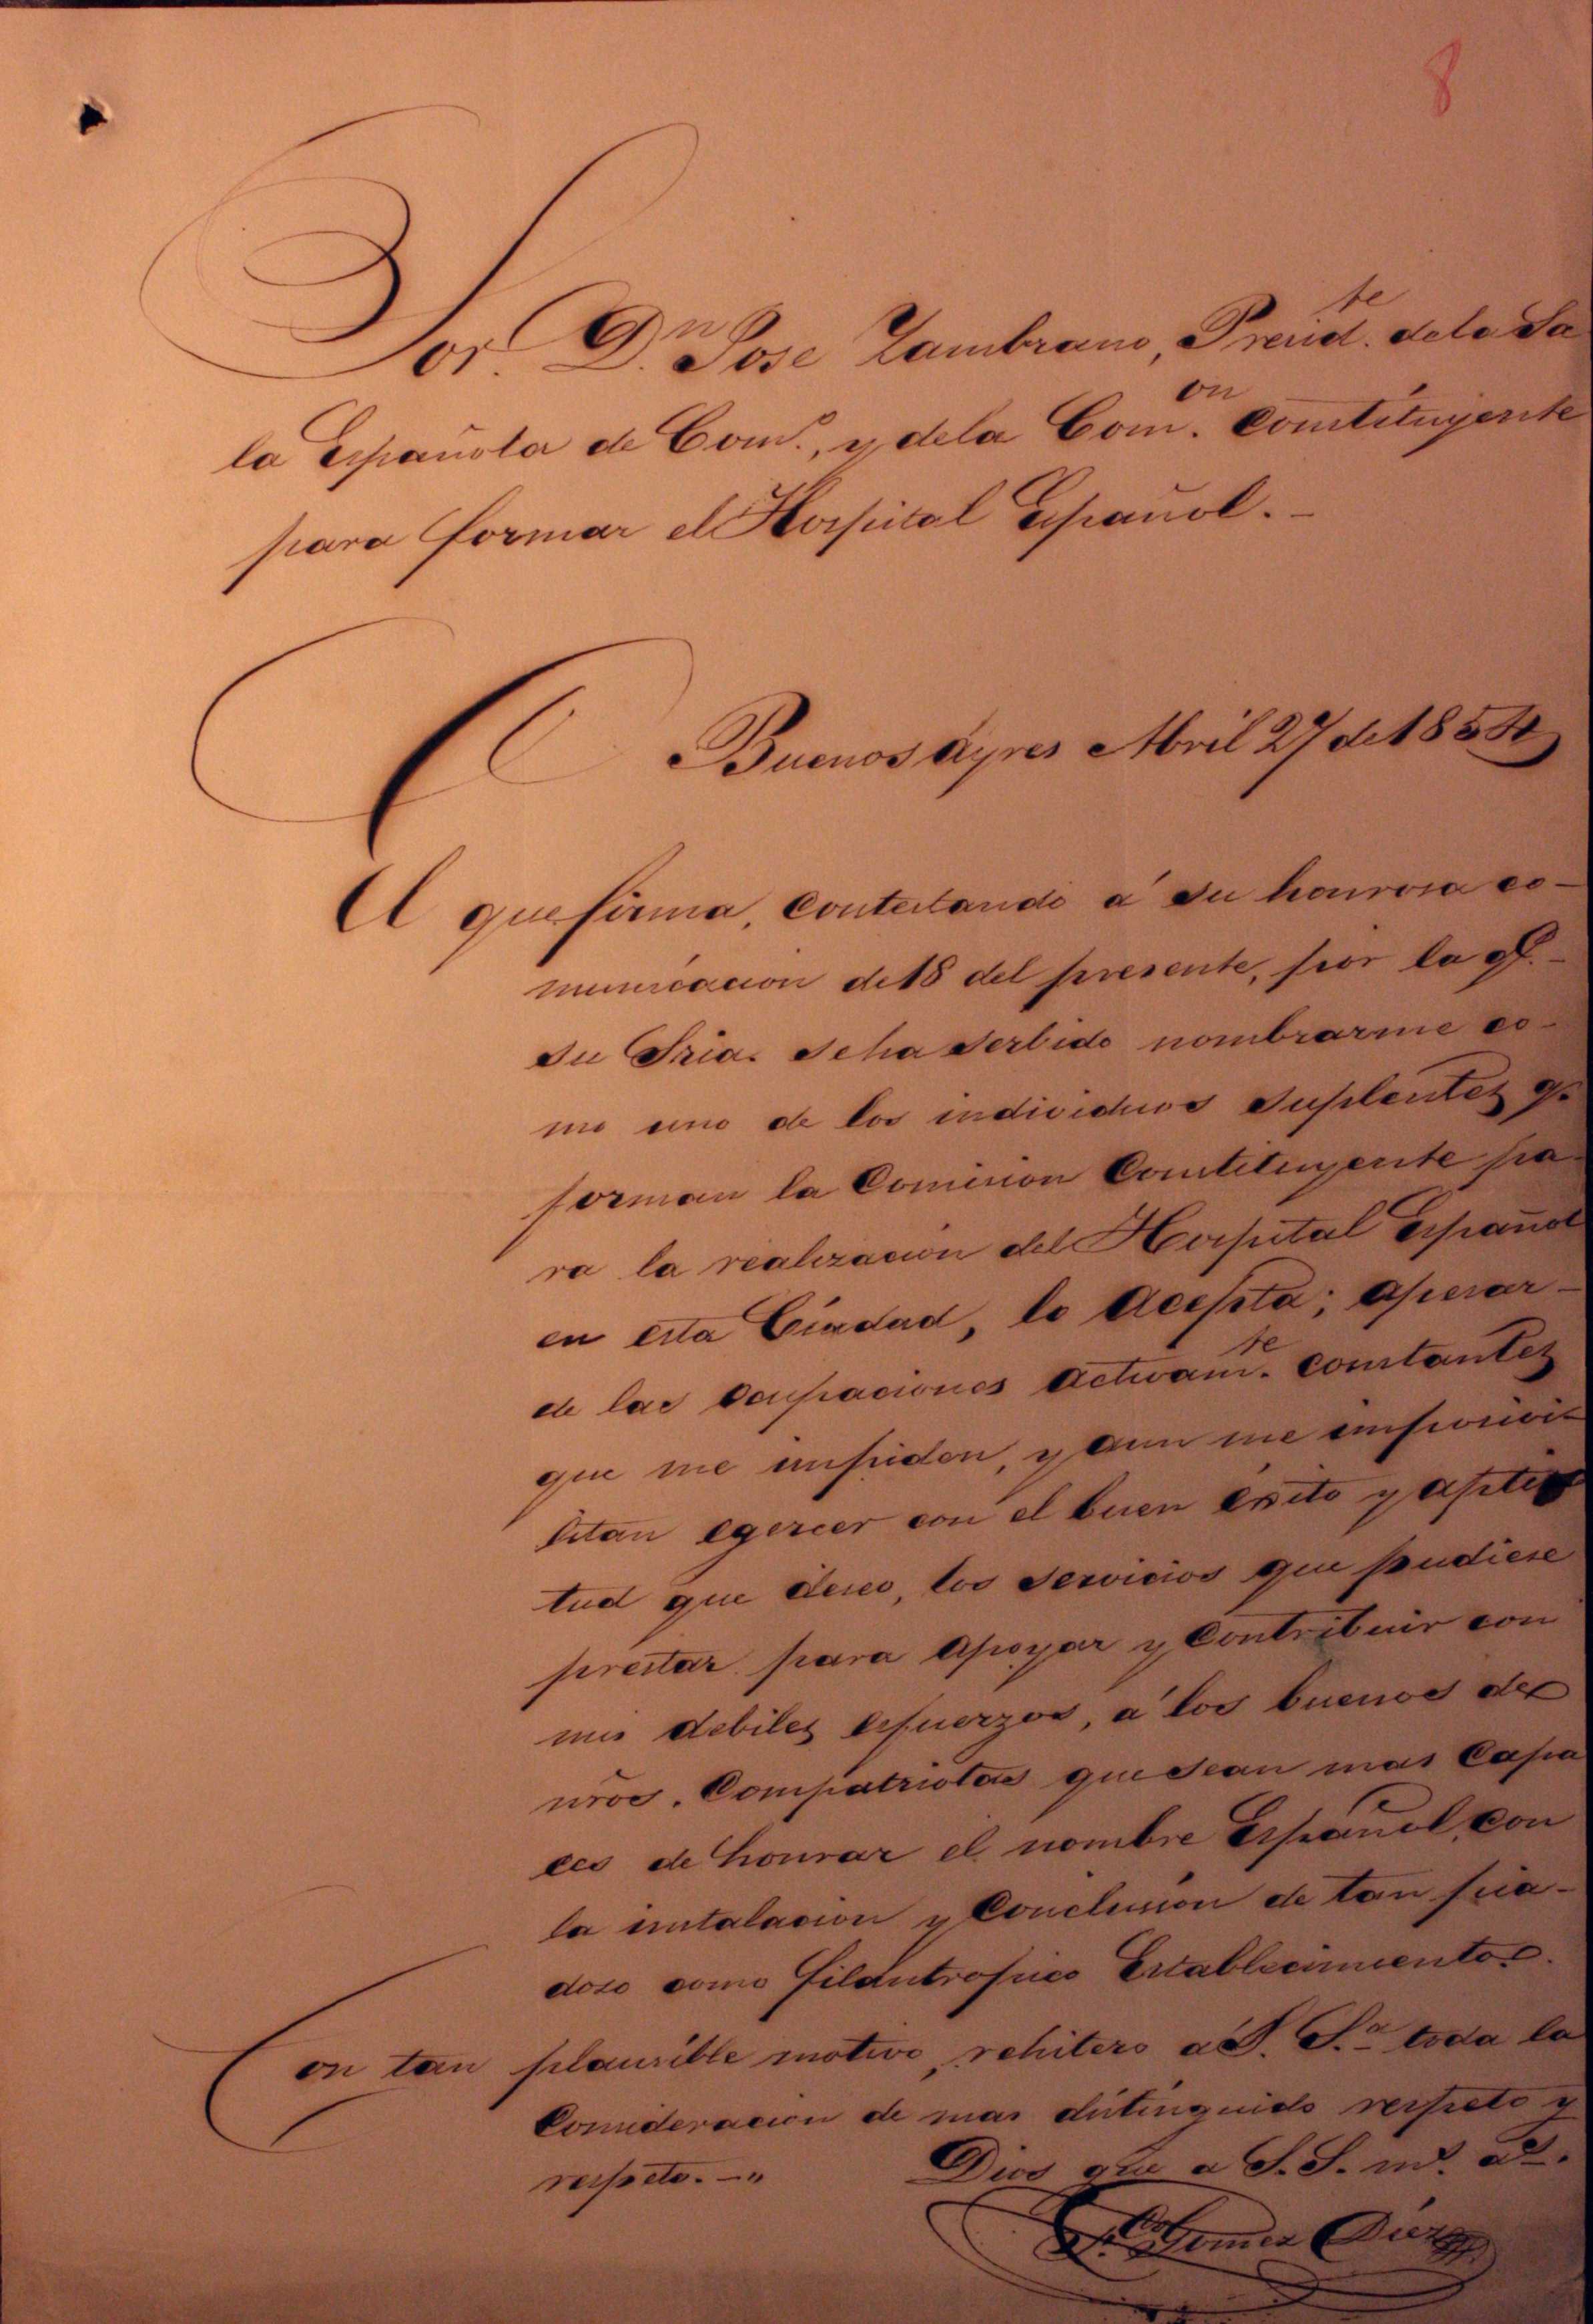 8
Sor. D.n Jose Zambrano, Presid.te de la Sa
la Española de Com.o, y de la Com.on Constituyente
para formar el Hospital Español. –
Buenos ayres Abril 27 de 1854
El que firma, contestando á su honrosa co-
municacion de 18 del presente, por la ql. -
su Sria. se ha serbido nombrarme co-
mo uno de los individuos suplentes q.
forman la Comision Constituyente pa-
ra la realizacion del Hospital Español
en esta Ciudad, lo acepta; apesar -
de las ocupaciones activam.te constantes
que me impiden, y aun me imposivi-
litan egercer con el buen éxito y apti
tud que deseo, los servicios que pudiese
prestar para apoyar y contribuir con
mis debiles esfuerzos, a' los buenos de
nr̃os. Compatriotas que sean mas Capa
ces de honrar el nombre Español, con
la instalacion y Conclusion de tan pia-
doso como filantropico Establecimiento.
Con tan plausible motivo, rehitero a S. S.a toda la
Consideracion de mas distinguido respeto y
respeto. –„
Dios gũe a S. S. m.s a.s.
Gomez Díez